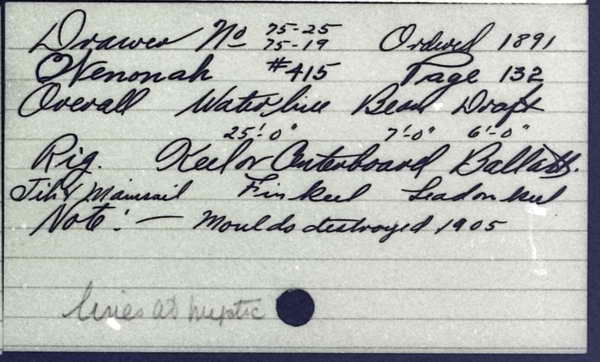 Drawer No 75-25 Ordered 1891
75-19
Wenonah #415 Page 132
Overall Waterline Beam Draft
25'-0" 7'-0" 6'-0"
Rig. Keel or Centerboard Ballast.
Jib & Mainsail Fin keel Lead on keel
Note: — Moulds destroyed 1905
lines at